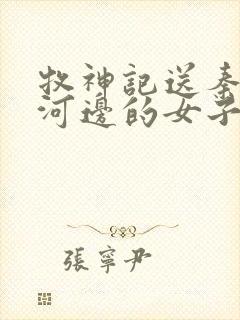 牧神記送秦
河邊的女子
張寧尹